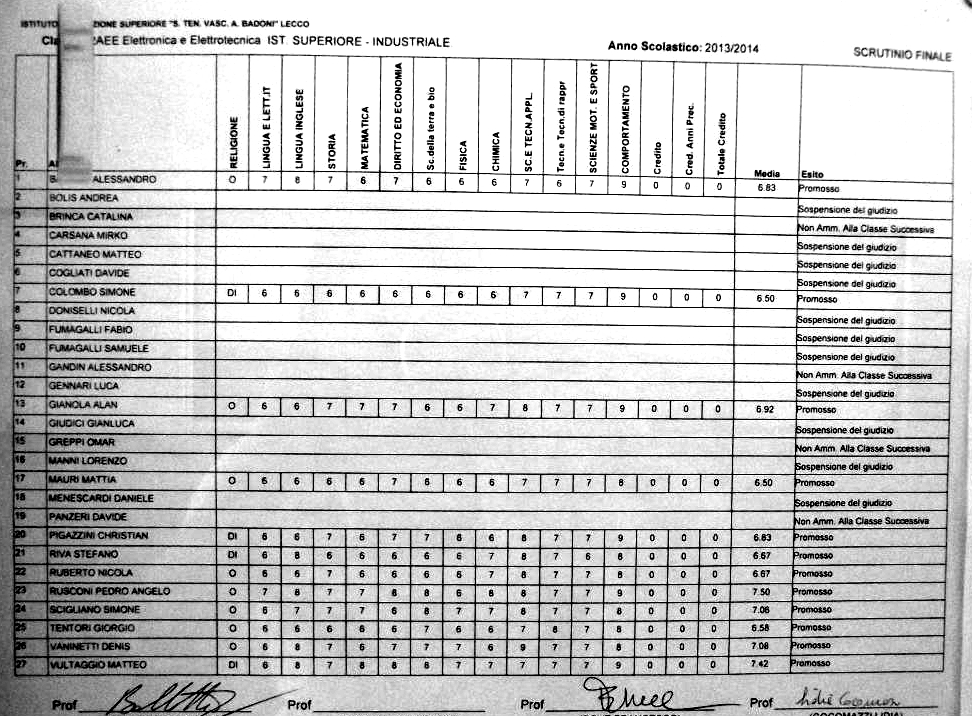 ISTITUTO ZIONE SUPERIORE "S. TEN. VASC. A. BADONI" LECCO
Cla AEE Elettronica e Elettrotecnica IST. SUPERIORE - INDUSTRIALE Anno Scolastico: 2013/2014 SCRUTINIO FINALE
Pr. RELIGIONE LINGUA E LETT.IT LINGUA INGLESE STORIA MATEMATICA DIRITTO ED ECONOMIA Sc.della terra e bio FISICA CHIMICA SC.E TECN.APPL. Tecn.e Tecn.di rappr SCIENZE MOT. E SPORT COMPORTAMENTO Credito Cred. Anni Prec. Totale Credito Media Esito
1 ALESSANDRO O 7 8 7 6 7 6 6 6 7 6 7 9 0 0 0 6.83 Promosso
2 BOLIS ANDREA Sospensione del giudizio
3 BRINCA CATALINA Non Amm. Alla Classe Successiva
4 CARSANA MIRKO Sospensione del giudizio
5 CATTANEO MATTEO Sospensione del giudizio
6 COGLIATI DAVIDE Sospensione del giudizio
7 COLOMBO SIMONE DI 6 6 6 6 6 6 6 6 7 7 7 9 0 0 0 6.50 Promosso
8 DONISELLI NICOLA Sospensione del giudizio
9 FUMAGALLI FABIO Sospensione del giudizio
10 FUMAGALLI SAMUELE Sospensione del giudizio
11 GANDIN ALESSANDRO Non Amm. Alla Classe Successiva
12 GENNARI LUCA Sospensione del giudizio
13 GIANOLA ALAN O 6 6 7 7 7 6 6 7 8 7 7 9 0 0 0 6.92 Promosso
14 GIUDICI GIANLUCA Sospensione del giudizio
15 GREPPI OMAR Non Amm. Alla Classe Successiva
16 MANNI LORENZO Sospensione del giudizio
17 MAURI MATTIA O 6 6 6 6 7 6 6 6 7 7 7 8 0 0 0 6.50 Promosso
18 MENESCARDI DANIELE Sospensione del giudizio
19 PANZERI DAVIDE Non Amm. Alla Classe Successiva
20 PIGAZZINI CHRISTIAN DI 6 6 7 6 7 7 6 6 8 7 7 9 0 0 0 6.83 Promosso
21 RIVA STEFANO DI 6 8 6 6 6 6 6 7 8 7 6 8 0 0 0 6.67 Promosso
22 RUBERTO NICOLA O 6 6 7 6 6 6 6 7 8 7 7 8 0 0 0 6.67 Promosso
23 RUSCONI PEDRO ANGELO O 7 8 7 7 8 8 6 8 8 7 7 9 0 0 0 7.50 Promosso
24 SCIGLIANO SIMONE O 6 7 7 7 6 8 7 7 8 7 7 8 0 0 0 7.08 Promosso
25 TENTORI GIORGIO O 6 6 6 6 6 7 6 6 7 8 7 8 0 0 0 6.58 Promosso
26 VANINETTI DENIS O 6 8 7 6 7 7 7 6 9 7 7 8 0 0 0 7.08 Promosso
27 VULTAGGIO MATTEO DI 6 8 7 8 8 8 7 7 7 7 7 9 0 0 0 7.42 Promosso
Prof Prof Prof Prof